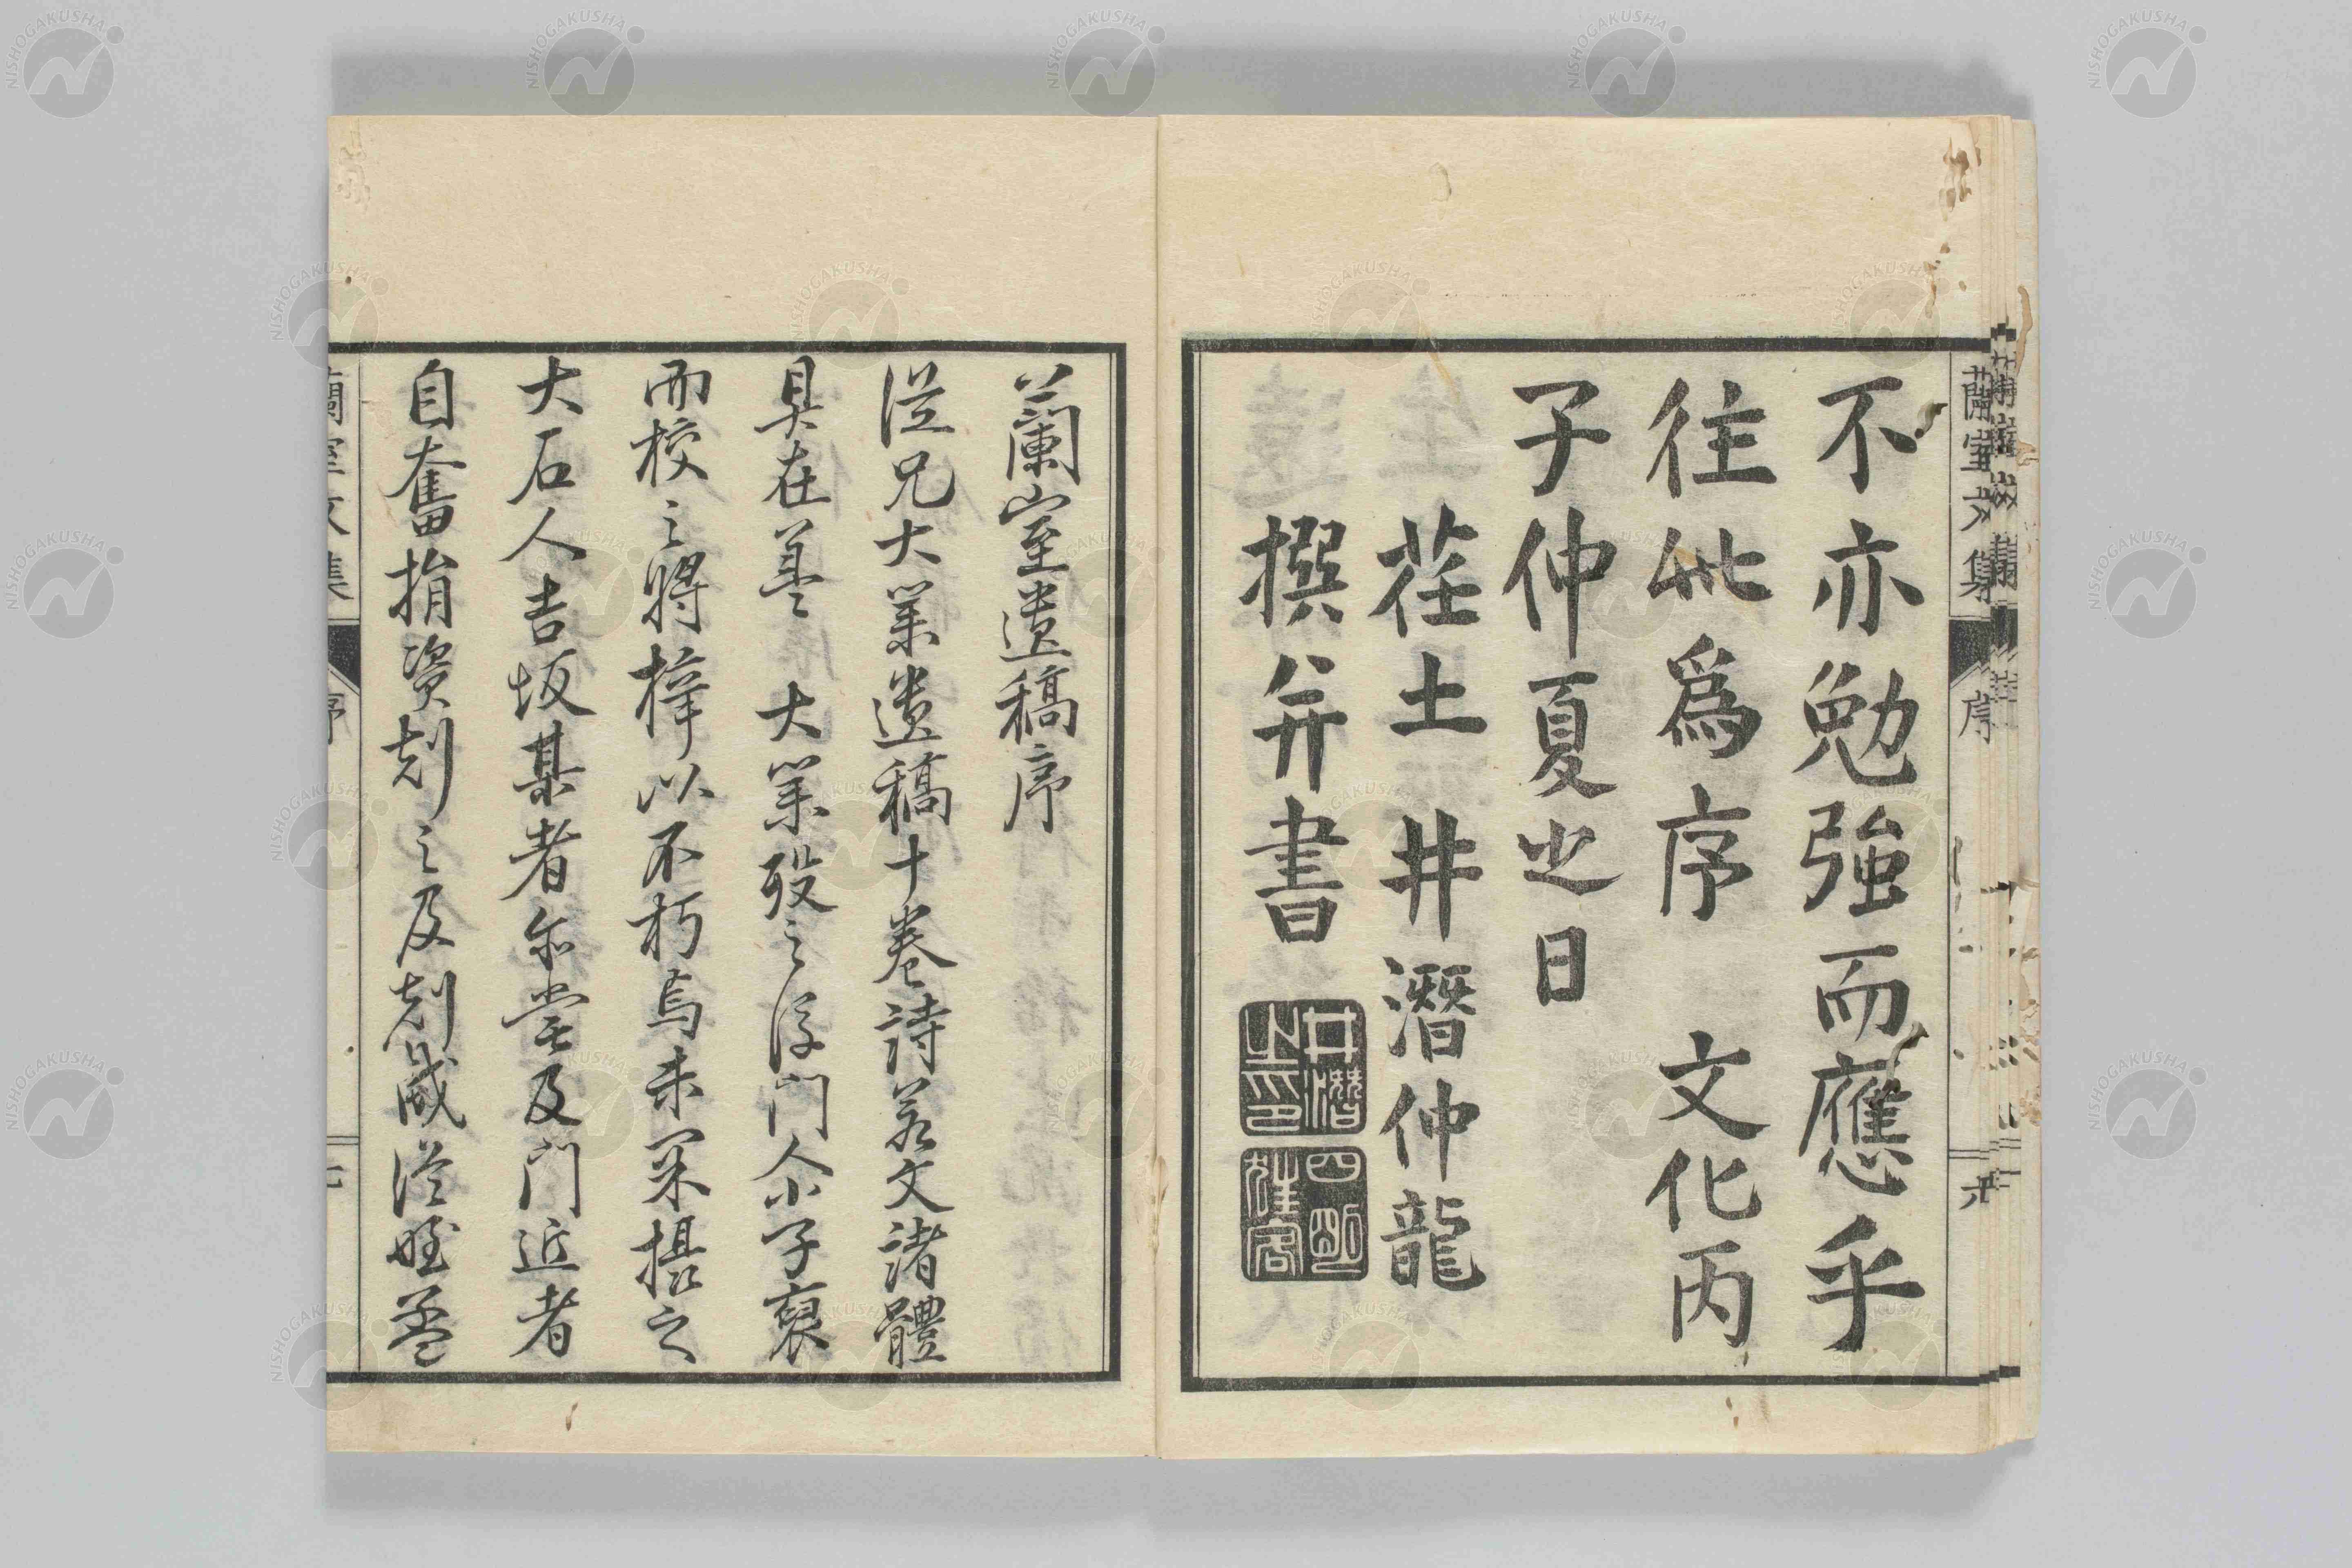 不亦勉強而應乎
往此爲序 文化丙
子仲夏之日
荏土井潛仲龍
撰并書
井潛之印
四明
蘭室文集
序
六
蘭室遺稿序
從兄大業遺稿十卷詩若文諸體
具在焉 大業歿之後門人小子裒
而校之將梓以不朽焉未果損之
大石人吉坂某者亦嘗及門近者
自奮捐資刻之及刻成從姪孟
蘭室文集
序
七
NISHOGAKUSHA